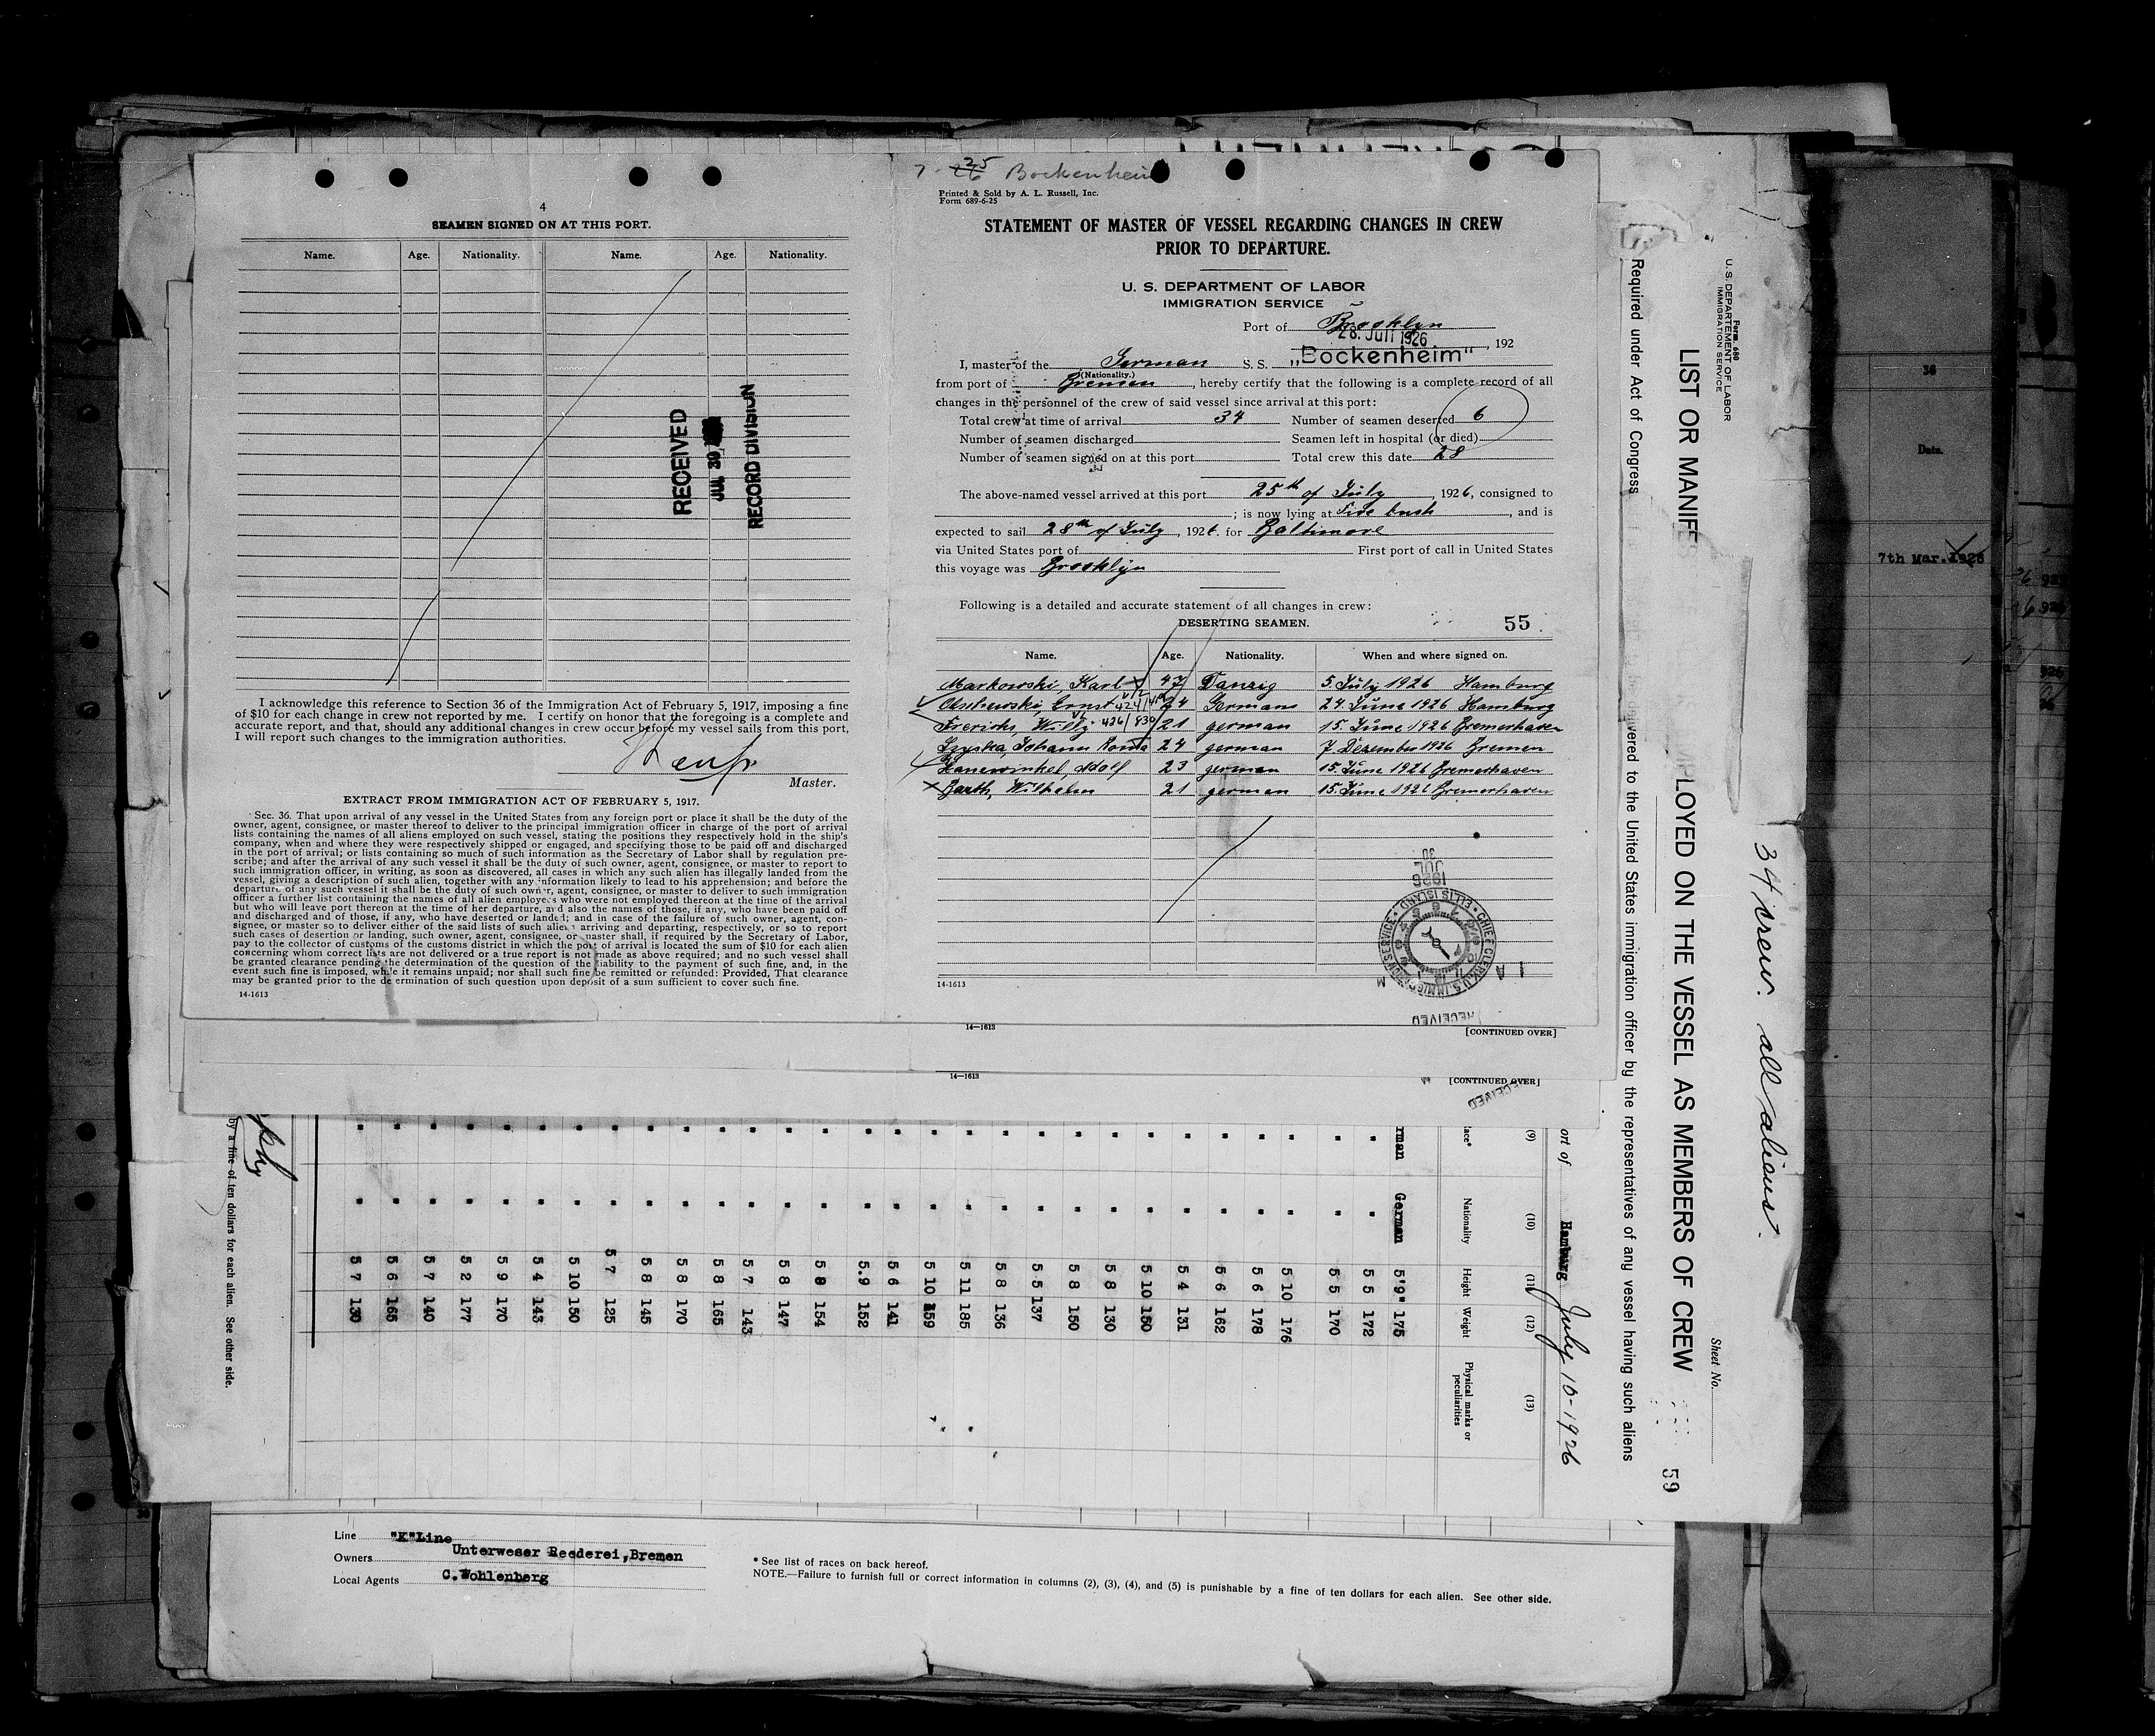 4
SEAMEN SIGNED ON AT THIS PORT.
Name. Age. Nationality. Name. Age. Nationality.
RECEIVED
JUL 30
RECORD DIVISION
I acknowledge this reference to Section 36 of the Immigration Act of February 5, 1917, imposing a fine
of $10 for each change in crew not reported by me. I certify on honor that the foregoing is a complete and
accurate report, and that, should any additional changes in crew occur before my vessel sails from this port,
I will report such changes to the immigration authorities.
Master.
EXTRACT FROM IMMIGRATION ACT OF FEBRUARY 5, 1917.
Sec. 36. That upon arrival of any vessel in the United States from any foreign port or place it shall be the duty of the
owner, agent, consignee, or master thereof to deliver to the principal immigration officer in charge of the port of arrival
lists containing the names of all aliens employed on such vessel, stating the positions they respectively hold in the ship's
company, when and where they were respectively shipped or engaged, and specifying those to be paid off and discharged
in the port of arrival; or lists containing so much of such information as the Secretary of Labor shall by regulation pre-
scribe; and after the arrival of any such vessel it shall be the duty of such owner, agent, consignee, or master to report to
such immigration officer, in writing, as soon as discovered, all cases in which any such alien has illegally landed from the
vessel, giving a description of such alien, together with any information likely to lead to his apprehension; and before the
departure of any such vessel it shall be the duty of such owner, agent, consignee, or master to deliver to such immigration
officer a further list containing the names of all alien employees who were not employed thereon at the time of the arrival
but who will leave port thereon at the time of her departure, and also the names of those, if any, who have been paid off
and discharged and of those, if any, who have deserted or landed; and in case of the failure of such owner, agent, con-
signee, or master so to deliver either of the said lists of such aliens arriving and departing, respectively, or so to report
such cases of desertion or landing, such owner, agent, consignee, or master shall, if required by the Secretary of Labor,
pay to the collector of customs of the customs district in which the port of arrival is located the sum of $10 for each alien
concerning whom correct lists are not delivered or a true report is not made as above required; and no such vessel shall
be granted clearance pending the determination of the question of the liability to the payment of such fine, and, in the
event such fine is imposed, while it remains unpaid; nor shall such fine be remitted or refunded: Provided, That clearance
may be granted prior to the determination of such question upon deposit of a sum sufficient to cover such fine.
14-1613
7 25 Bockenheim
Printed & Sold by A. L. Russell, Inc.
Form 689-6-25
STATEMENT OF MASTER OF VESSEL REGARDING CHANGES IN CREW
PRIOR TO DEPARTURE.
U. S. DEPARTMENT OF LABOR
IMMIGRATION SERVICE
Port of Brooklyn
28. Juli 1926, 192
I, master of the German S. S. „Bockenheim"
(Nationality.)
from port of Bremen, hereby certify that the following is a complete record of all
changes in the personnel of the crew of said vessel since arrival at this port:
Total crew at time of arrival 34 Number of seamen deserted 6
Number of seamen discharged Seamen left in hospital (or died)
Number of seamen signed on at this port Total crew this date 28
The above-named vessel arrived at this port 25th of July, 1926, consigned to
; is now lying at , and is
expected to sail 28th of July, 1926. for Baltimore
via United States port of First port of call in United States
this voyage was Brooklyn
Following is a detailed and accurate statement of all changes in crew:
DESERTING SEAMEN. 55
Name. Age. Nationality. When and where signed on.
Markowski, Karl 47 Danzig 5. July 1926 Hamburg
Ernst 424/ 24 Germans 24. June 1926 Hamburg
Frerichs, Willy 426/830 21 german 15. June 1926 Bremerhaven
Johann 24 german 7 Dezember 1926 Bremen
Hanewinkel, Adolf 23 german 15. June 1926 Bremerhaven
Barth, Wilhelm 21 german 15. June 1926 Bremerhaven
30
JUL
1926
CHIEF CLERK, U.S. IMMIGRATION SERVICE • ELLIS ISLAND •
A M
RECEIVED
14-1613
14—1613 [CONTINUED OVER]
14—1613 [CONTINUED OVER]
RECEIVED
34 crew. all aliens.
Form 680
U. S. DEPARTMENT OF LABOR
IMMIGRATION SERVICE
Sheet No.
LIST OR MANIFE
PLOYED ON THE VESSEL AS MEMBERS OF CREW
59
Required under Act of Congress
be delivered to the United States immigration officer by the representatives of any vessel having such aliens
ort of Hamburg July 10-1926
(9) (10) (11) (12) (13)
ace* Nationality Height Weight Physical marks or peculiarities
rman German 5'9" 175
" " 5 5 172
" " 5 5 170
" " 5 10 176
" " 5 6 178
" " 5 6 162
" " 5 4 131
" " 5 10 150
" " 5 8 130
" " 5 8 150
" " 5 5 137
" " 5 8 136
" " 5 11 185
" " 5 10 159
" " 5 6 141
" " 5.9 152
" " 5 8 154
" " 5 8 147
" " 5 7 143
" " 5 8 165
" " 5 8 170
" " 5 8 145
" " 5 7 125
" " 5 10 150
" " 5 4 143
" " 5 9 170
" " 5 2 177
" " 5 7 140
" " 5 6 165
" " 5 7 130
by a fine of ten dollars for each alien. See other side.
Line "K"Line
Owners Unterweser Reederei,Bremen
Local Agents C.Wohlenberg
* See list of races on back hereof.
NOTE.—Failure to furnish full or correct information in columns (2), (3), (4), and (5) is punishable by a fine of ten dollars for each alien. See other side.
36
Date.
7th Mar. 1926